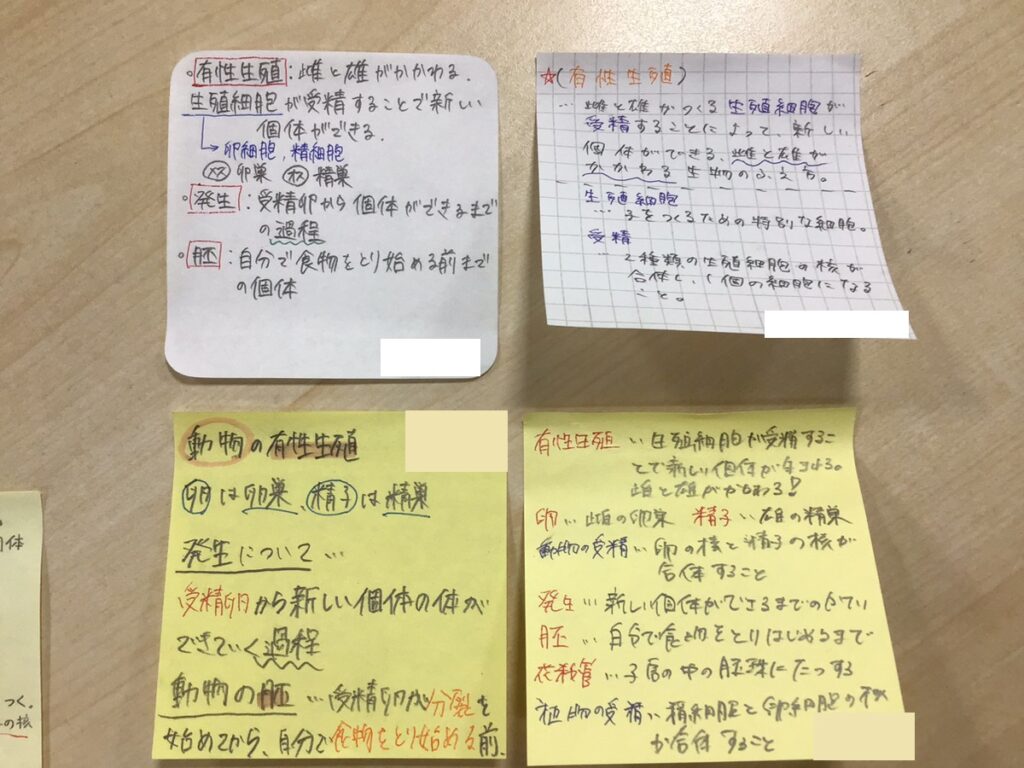 。有性生殖：雌と雄がかかわる.
生殖細胞が受精することで新しい
個体ができる.
→卵細胞,精細胞
メス 卵巣 オス 精巣
。発生：受精卵から個体ができるまで
の過程
。胚：自分で食物をとり始める前まで
の個体
☆(有性生殖)
… 雌と雄がつくる生殖細胞が
受精することによって、新しい
個体ができる、雌と雄が
かかわる生物のふえ方。
生殖細胞
… 子をつくるための特別な細胞。
受精
… 2種類の生殖細胞の核が
合体し、1個の細胞になる
こと。
動物の有性生殖
卵は卵巣、精子は精巣
発生について…
受精卵から新しい個体の体が
できていく過程
動物の胚 … 受精卵が分裂を
始めてから、自分で食物をとり始める前、
有性生殖 … 生殖細胞が受精するこ
とで新しい個体が
雌と雄がかかわる!
卵 … 雌の卵巣 精子 … 雄の精巣
動物の受精 … 卵の核と精子の核が
合体すること
発生 … 新しい個体ができるまでのかてい
胚 … 自分で食物をとりはじめるまで
花粉管 … 子房の中の胚珠にたっする
植物の受精 … 精細胞と卵細胞の核
が合体すること
体
つく。
の核